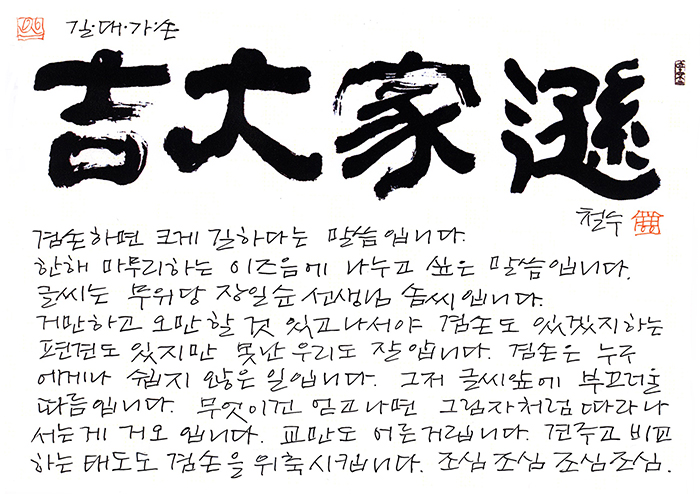 길·대·가·손
吉大家遜
철수
겸손하면 크게 길하다는 말씀입니다.
한해 마무리하는 이즈음에 나누고 싶은 말씀입니다.
글씨는 무위당 장일순선생님 솜씨입니다.
거만하고 오만할 것 있고나서야 겸손도 있겠지하는
편견도 있지만 못난 우리도 잘 압니다. 겸손은 누구
에게나 쉽지 않은 일입니다. 그저 글씨앞에 부끄러울
따름입니다. 무엇이건 얻고나면 그림자처럼 따라나
서는게 거오 입니다. 교만도 어른거립니다. 견주고 비교
하는 태도도 겸손을 위축시킵니다. 조심조심조심조심.